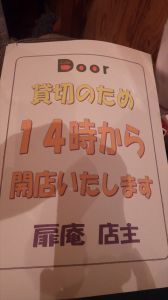 Door
貸切のため
１４時から
開店いたします
扉庵 店主